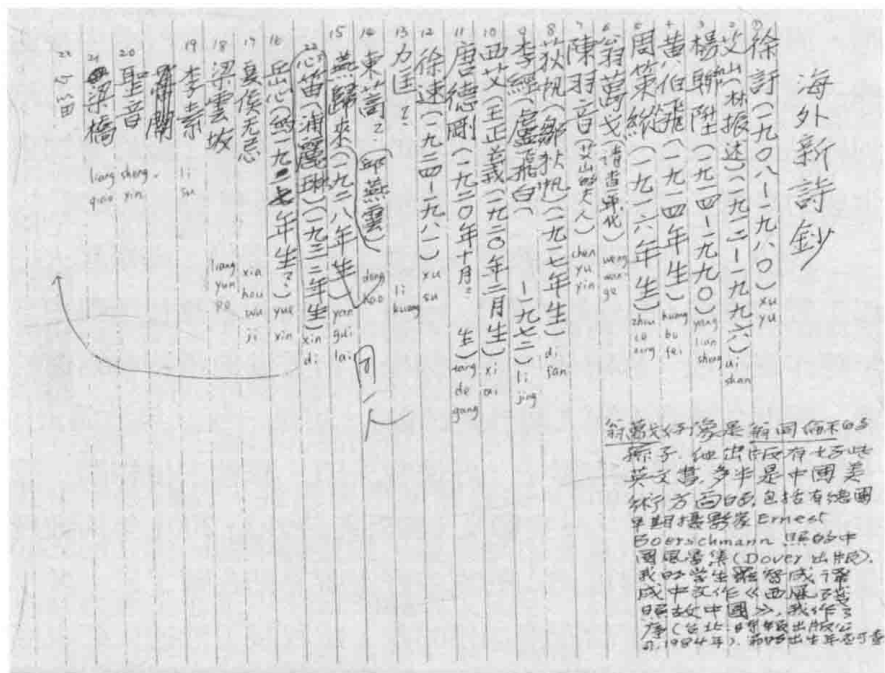 海外新詩鈔
① 徐訏(一九〇八—一九八〇) xu yu
2 艾山(林振述)(一九一二—一九九六) ai shan
3 楊聯陞(一九一四—一九九〇) yang lian sheng
4 黃伯飛(一九一四年生) huang bo fei
5 周策縱(一九一六年生) zhou ce zong
6 翁萬戈(請查年代) weng wan ge
7 陳羽音(艾山的夫人) chen yu yin
8 荻帆(鄒荻帆)(一九一七年生) di fan
9 李經(盧飛白)( —一九七二) li jing
10 西艾(王正義)(一九二〇年二月生) xi ai
11 唐德剛(一九二〇年十月? 生) tang de gang
12 徐速(一九二四—一九八一) xu su
13 力匡? li kuang
14 東蒿?(邱燕雲) dong hao
15 燕歸來(一九二八年生) yan gui lai 同一人
22 心笛(浦麗琳)(一九三二年生) xin di
16 岳心( 年生?) yue xin
17 夏侯无忌 xia hou wu ji
18 梁雲坡 liang yun po
19 李素 li su
20 聖音 sheng yin
21 梁橋 liang qiao
22 心笛
翁萬戈好像是翁同龢的
孫子,他出版有好些
英文書,多半是中國美
術方面的,包括有德國
早期攝影家Ernest
Boerschmann 照的中
國風景集(Dover出版),
我的學生羅智成譯
成中文作《西風殘
照故中國》,我作了
序(台北:時報出版公
司,1984年),翁的出生年應可查